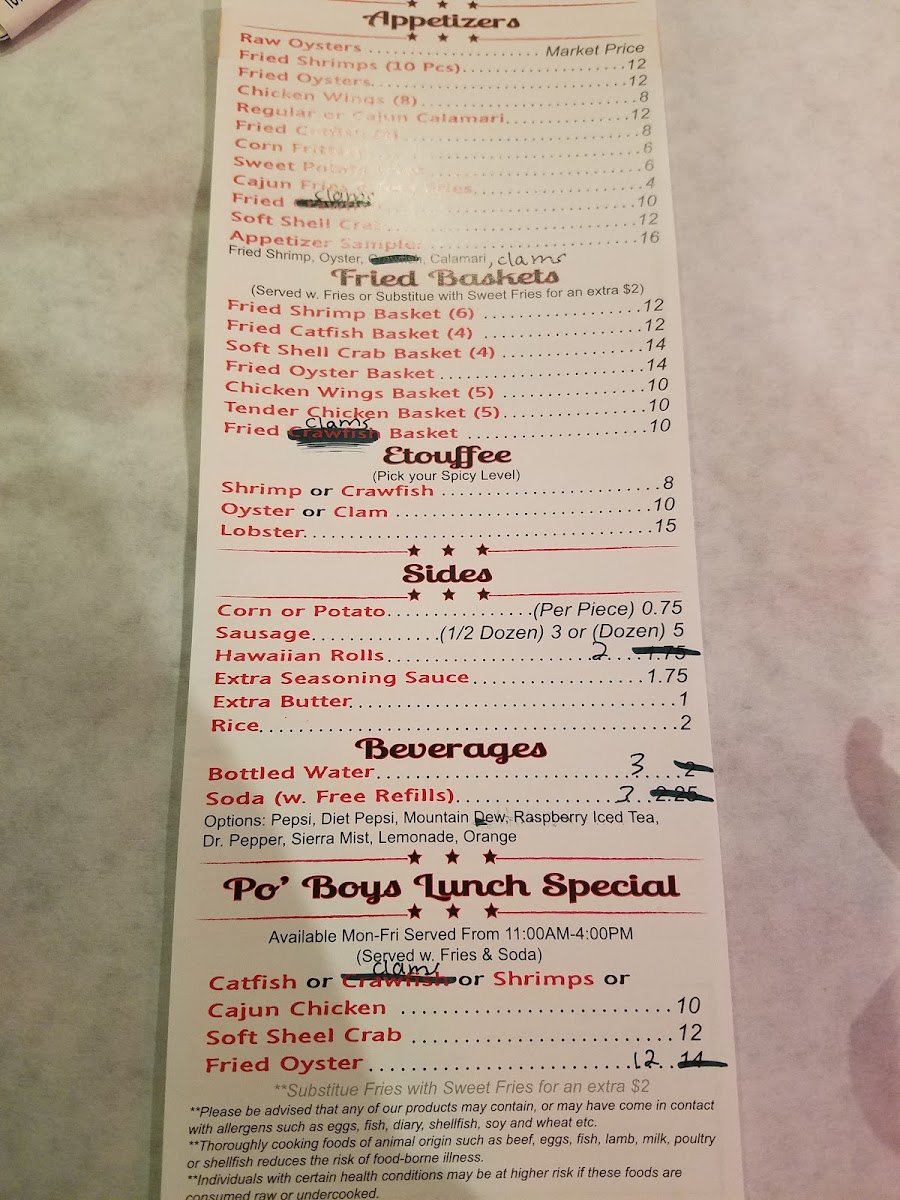 Appetizers
Raw Oysters .................... Market Price
Fried Shrimps (10 Pcs)....................12
Fried Oysters....................12
Chicken Wings (8)....................8
Regular or Cajun Calamari....................12
Fried ....................8
Corn ....................6
Sweet ....................6
Cajun Fries ....................4
Fried clams ....................10
Soft Shell ....................12
Appetizer Sampler ....................16
Fried Shrimp, Oyster, Calamari, clams
Fried Baskets
(Served w. Fries or Substitue with Sweet Fries for an extra $2)
Fried Shrimp Basket (6) ....................12
Fried Catfish Basket (4) ....................12
Soft Shell Crab Basket (4) ....................14
Fried Oyster Basket ....................14
Chicken Wings Basket (5) ....................10
Tender Chicken Basket (5)....................10
clams
Fried Crawfish Basket ....................10
Etouffee
(Pick your Spicy Level)
Shrimp or Crawfish ....................8
Oyster or Clam ....................10
Lobster....................15
Sides
Corn or Potato...............(Per Piece) 0.75
Sausage.............(1/2 Dozen) 3 or (Dozen) 5
Hawaiian Rolls....................2....1.75
Extra Seasoning Sauce....................1.75
Extra Butter....................1
Rice....................2
Beverages
Bottled Water....................3....2
Soda (w. Free Refills)....................3..2.25
Options: Pepsi, Diet Pepsi, Mountain Dew, Raspberry Iced Tea,
Dr. Pepper, Sierra Mist, Lemonade, Orange
Po' Boys Lunch Special
Available Mon-Fri Served From 11:00AM-4:00PM
(Served w. Fries & Soda)
clams
Catfish or Crawfish or Shrimps or
Cajun Chicken ....................10
Soft Sheel Crab ....................12
Fried Oyster ....................12..14
**Substitue Fries with Sweet Fries for an extra $2
**Please be advised that any of our products may contain, or may have come in contact
with allergens such as eggs, fish, diary, shellfish, soy and wheat etc.
**Thoroughly cooking foods of animal origin such as beef, eggs, fish, lamb, milk, poultry
or shellfish reduces the risk of food-borne illness.
**Individuals with certain health conditions may be at higher risk if these foods are
consumed raw or undercooked.